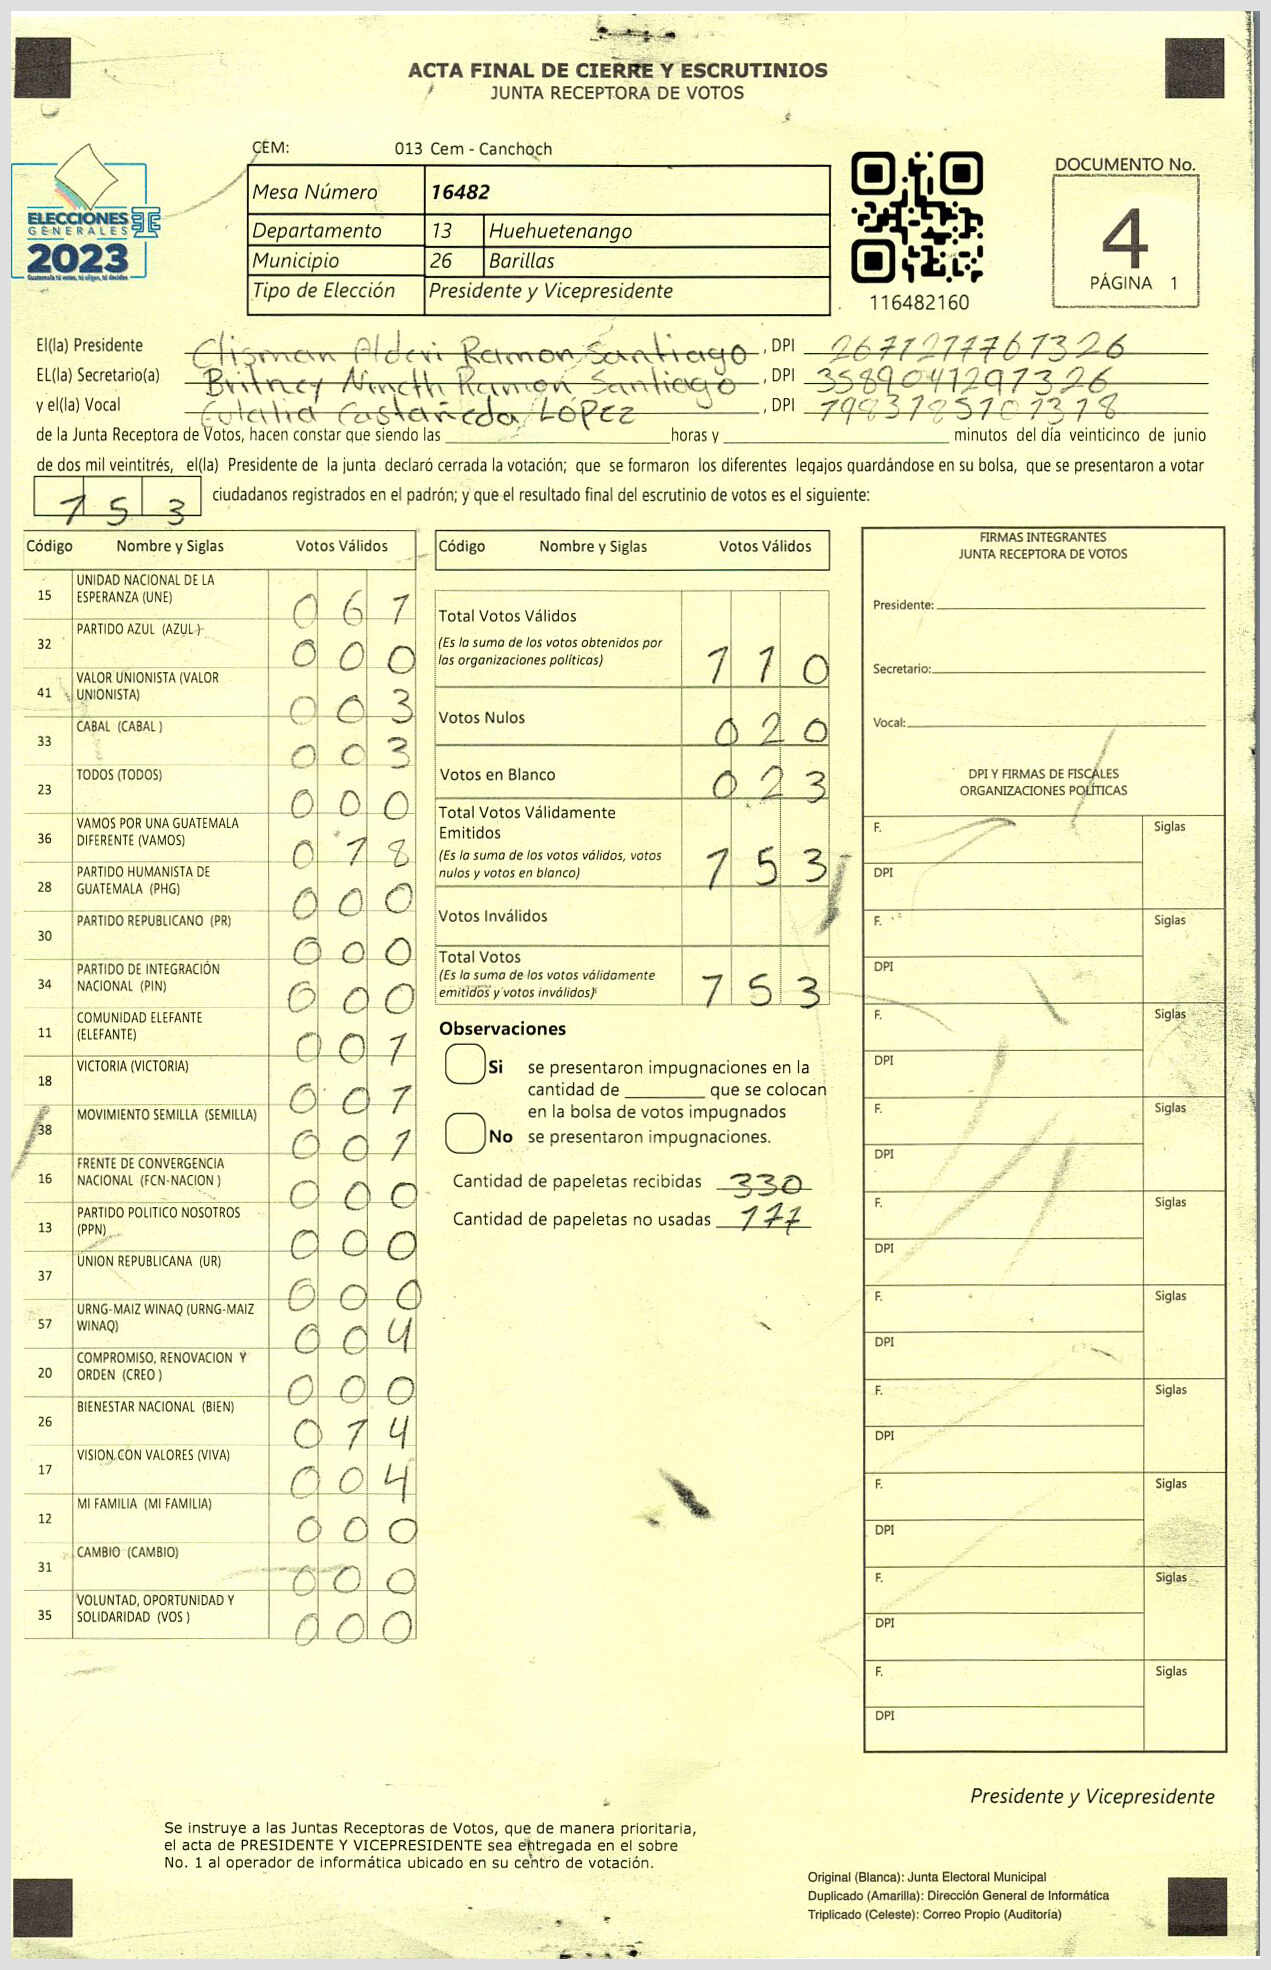 ACTA FINAL DE CIERRE Y ESCRUTINIOS
JUNTA RECEPTORA DE VOTOS
CEM: 013 Cem - Canchoch
Mesa Número 16482
Departamento 13 Huehuetenango
Municipio 26 Barillas
Tipo de Elección Presidente y Vicepresidente
ELECCIONES
GENERALES
2023
116482160
DOCUMENTO No.
4
PÁGINA 1
El(la) Presidente Clisman Alderi Ramon Santiago, DPI 2671277761326
EL(la) Secretario(a) Britney Nineth Ramon Santiago, DPI 3589041291326
y el(la) Vocal Eulalia Castañeda LÓPEZ, DPI
de la Junta Receptora de Votos, hacen constar que siendo las ____ horas y ____ minutos del día veinticinco de junio
de dos mil veintitrés, el(la) Presidente de la junta declaró cerrada la votación; que se formaron los diferentes legajos quardándose en su bolsa, que se presentaron a votar
153 ciudadanos registrados en el padrón; y que el resultado final del escrutinio de votos es el siguiente:
Código Nombre y Siglas Votos Válidos
15 UNIDAD NACIONAL DE LA ESPERANZA (UNE) 061
32 PARTIDO AZUL (AZUL ) 000
41 VALOR UNIONISTA (VALOR UNIONISTA) 003
33 CABAL (CABAL ) 003
23 TODOS (TODOS) 000
36 VAMOS POR UNA GUATEMALA DIFERENTE (VAMOS) 018
28 PARTIDO HUMANISTA DE GUATEMALA (PHG) 000
30 PARTIDO REPUBLICANO (PR) 000
34 PARTIDO DE INTEGRACIÓN NACIONAL (PIN) 000
11 COMUNIDAD ELEFANTE (ELEFANTE) 001
18 VICTORIA (VICTORIA) 001
38 MOVIMIENTO SEMILLA (SEMILLA) 001
16 FRENTE DE CONVERGENCIA NACIONAL (FCN-NACION ) 000
13 PARTIDO POLITICO NOSOTROS (PPN) 000
37 UNION REPUBLICANA (UR) 000
57 URNG-MAIZ WINAQ (URNG-MAIZ WINAQ) 004
20 COMPROMISO, RENOVACION Y ORDEN (CREO ) 000
26 BIENESTAR NACIONAL (BIEN) 014
17 VISION CON VALORES (VIVA) 004
12 MI FAMILIA (MI FAMILIA) 000
31 CAMBIO (CAMBIO) 000
35 VOLUNTAD, OPORTUNIDAD Y SOLIDARIDAD (VOS ) 000
Código Nombre y Siglas Votos Válidos
Total Votos Válidos 110
(Es la suma de los votos obtenidos por
las organizaciones políticas)
Votos Nulos 020
Votos en Blanco 023
Total Votos Válidamente
Emitidos 153
(Es la suma de los votos válidos, votos
nulos y votos en blanco)
Votos Inválidos
Total Votos 153
(Es la suma de los votos válidamente
emitidos y votos inválidos)
Observaciones
Si se presentaron impugnaciones en la
cantidad de ____ que se colocan
en la bolsa de votos impugnados
No se presentaron impugnaciones.
Cantidad de papeletas recibidas 330
Cantidad de papeletas no usadas 177
FIRMAS INTEGRANTES
JUNTA RECEPTORA DE VOTOS
Presidente:
Secretario:
Vocal:
DPI Y FIRMAS DE FISCALES
ORGANIZACIONES POLÍTICAS
F. Siglas
DPI
F. Siglas
DPI
F. Siglas
DPI
F. Siglas
DPI
F. Siglas
DPI
F. Siglas
DPI
F. Siglas
DPI
F. Siglas
DPI
F. Siglas
DPI
F. Siglas
DPI
Presidente y Vicepresidente
Se instruye a las Juntas Receptoras de Votos, que de manera prioritaria,
el acta de PRESIDENTE Y VICEPRESIDENTE sea entregada en el sobre
No. 1 al operador de informática ubicado en su centro de votación.
Original (Blanca): Junta Electoral Municipal
Duplicado (Amarilla): Dirección General de Informática
Triplicado (Celeste): Correo Propio (Auditoría)